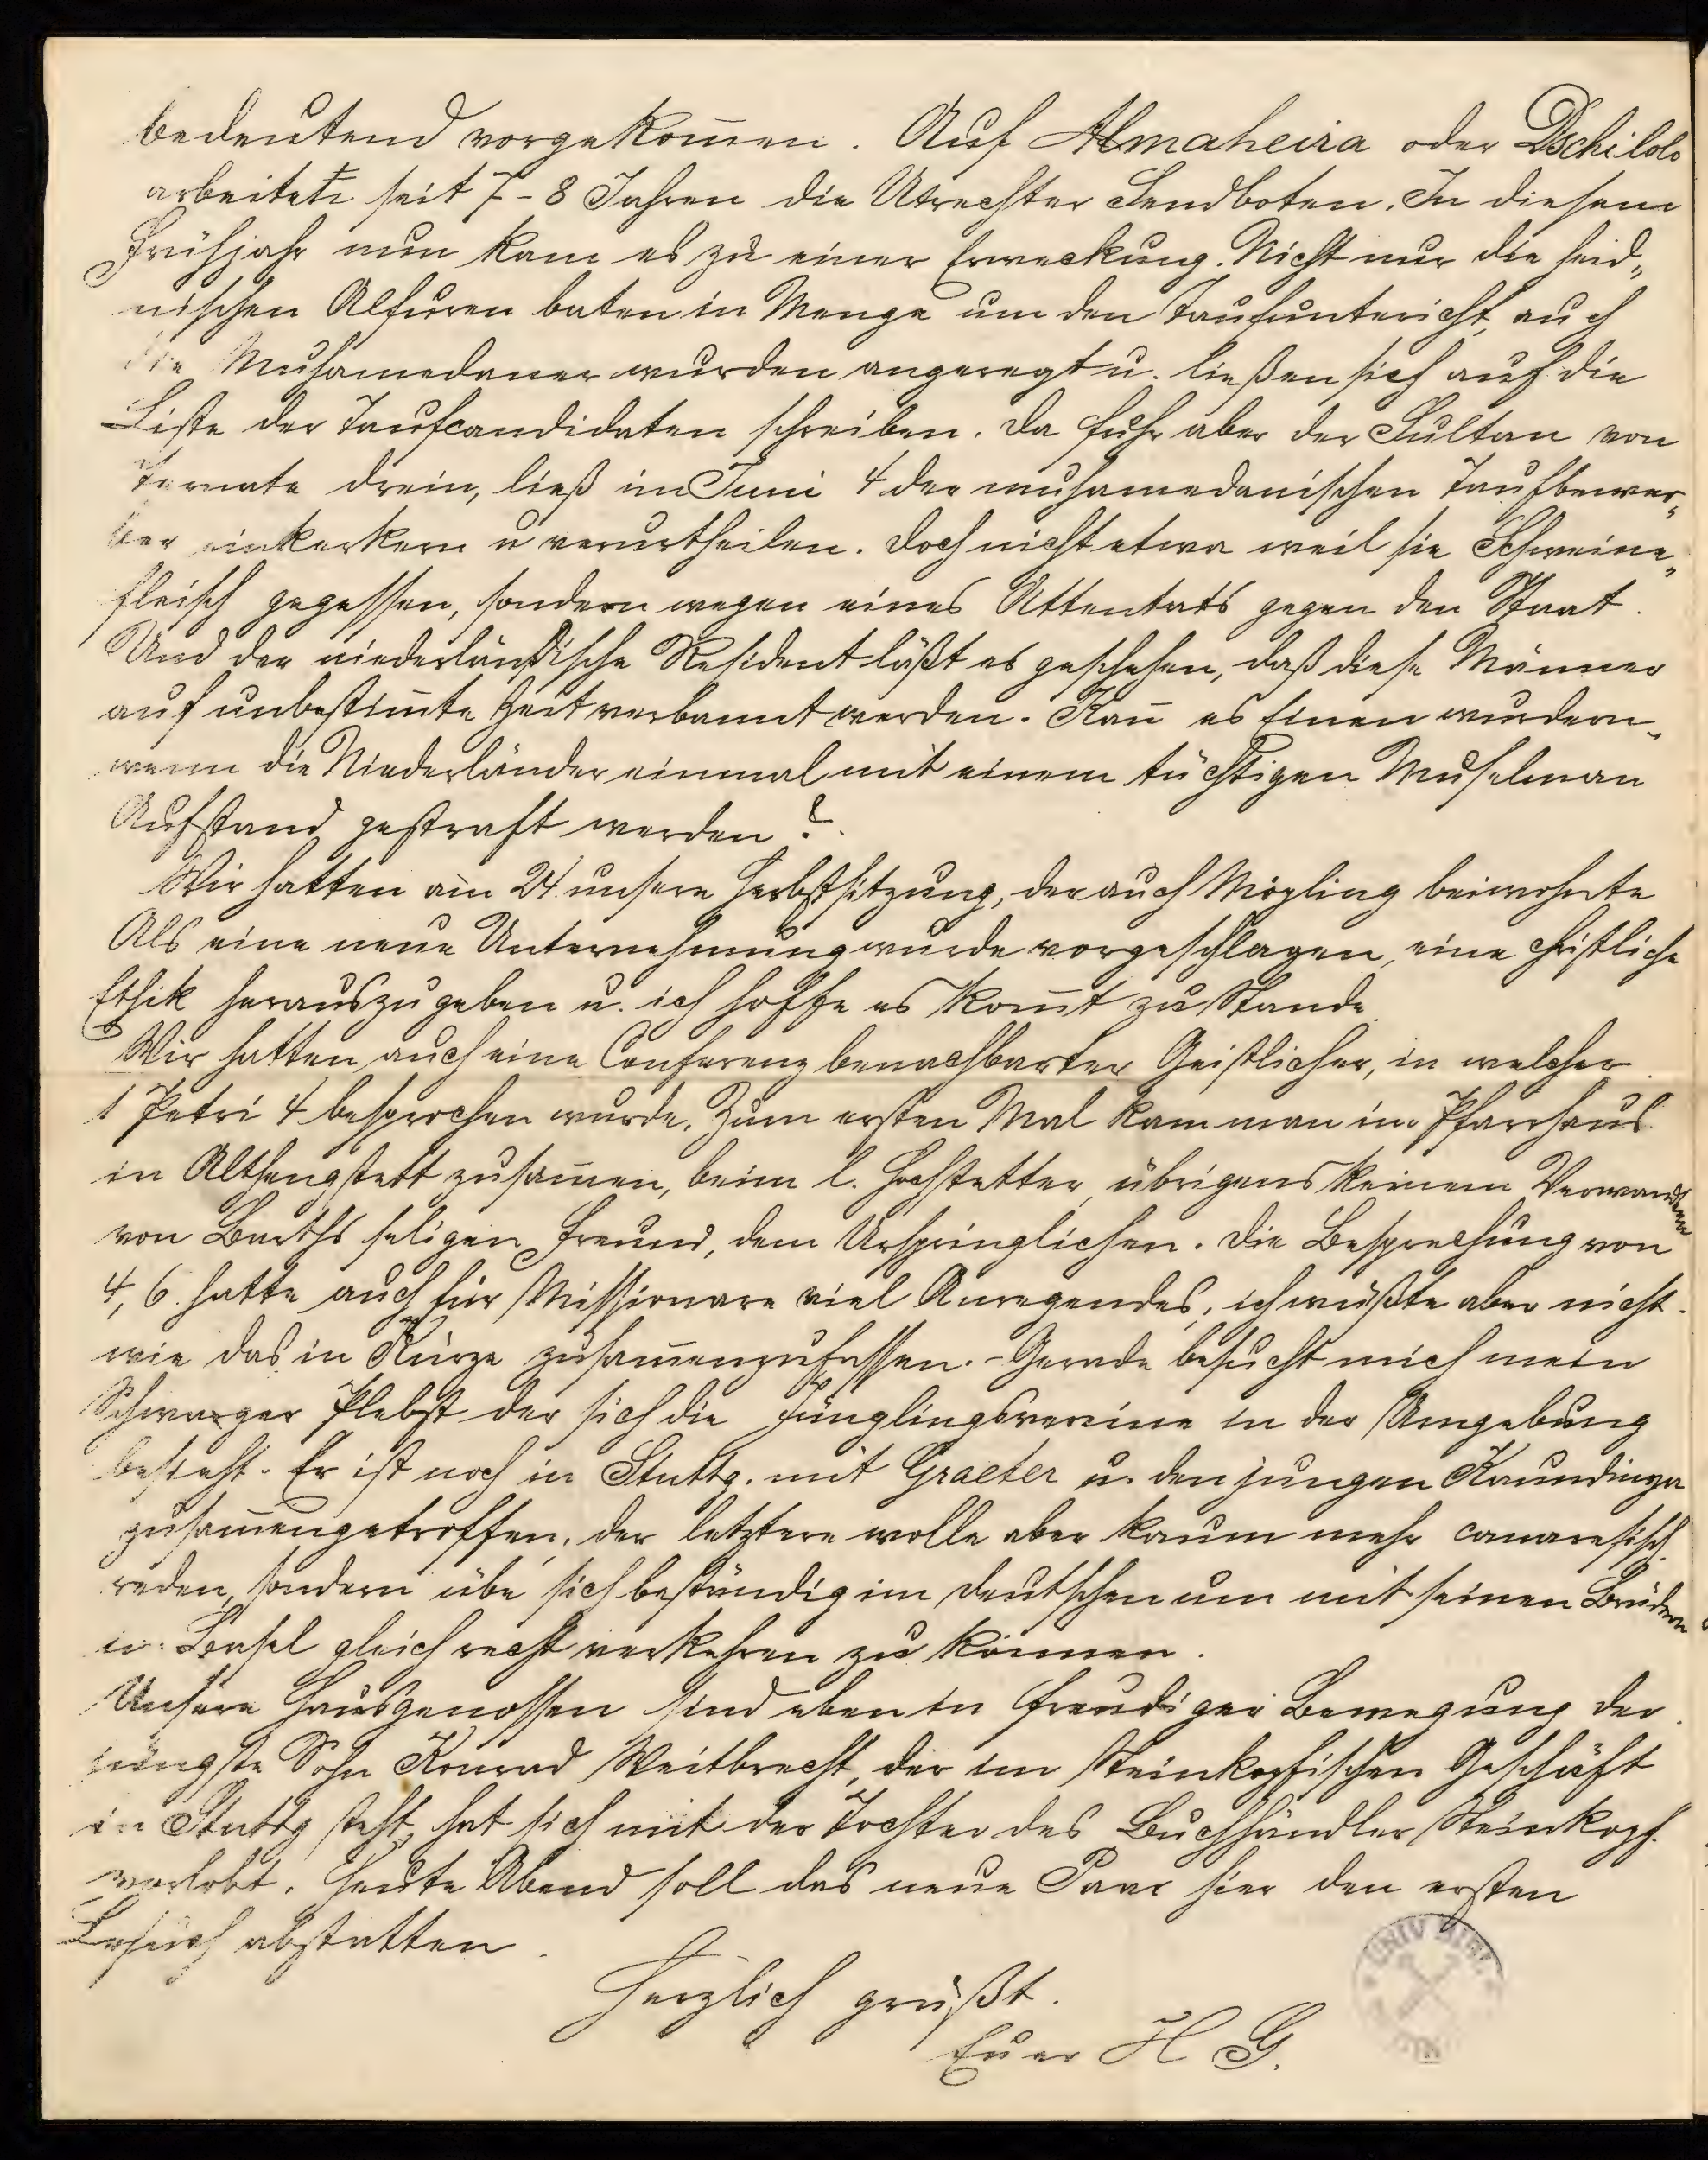 bedeutend vorgekom̅en. Auf Almaheira oder Dschilolo
arbeiteten seit 7-8 Jahren die Utrechter Sendboten. In diesem
Frühjahr nun kam es zu einer Erweckung. Nicht nur die heid„
nischen Alfuren baten in Menge um den Taufuntericht, auch
die Muhamedaner wurden angeregt u. ließen sich auf die
Liste der Taufcandidaten schreiben. Da fuhr aber der Sultan von
Ternate drein, ließ im Juni 4 der muhamedanischen Taufbewer„
ber einkerkern u verurtheilen. Doch nicht etwa weil sie Schweine„
fleisch gegessen, sondern wegen eines Attentats gegen den Staat.
Und der niederländische Resident läßt es geschehen, daß diese Männer
auf unbestim̅te Zeit verbannt werden. Kan̅ es Einen wundern„
wenn die Niederländer einmal mit einem tüchtigen Muselman
Aufstand gestraft werden?
Wir hatten am 24 unsere Herbstsitzung, der auch Mögling beiwohnte
Als eine neue Unternehmung wurde vorgeschlagen, eine christliche
Ethik herauszugeben u. ich hoffe es kom̅t zu Stande.
Wir hatten auch eine Conferenz benachbarter Geistlicher, in welcher
1 Petri 4 besprochen wurde. Zum ersten Mal kam man im Pfarrhaus
in Althengstett zusam̅en, beim l. Hochstetter, übrigens keinem Verwandten
von Barths seligen Freund, dem Ursprünglichen. Die Besprechung von
4, 6. hatte auch für Missionare viel Anregendes, ich wüßte aber nicht.
wie das in Kürze zusam̅enzufassen. - Gerade besucht mich mein
Schwager Plebst der sich die Jünglingsvereine in der Umgebung
besieht. Er ist noch in Stuttg. mit Graeter u. den jungen Kaundinya
zusam̅engetroffen, der letztere wolle aber kaum mehr canaresisch
reden, sondern übe sich beständig im deutschen um mit seinen Brüdern
in Basel gleich recht verkehren zu können.
Unsere Hausgenossen sind eben in freudiger Bewegung der
jüngste Sohn Konrad Weitbrecht, der im Steinkopfischen Geschäft
in Stuttg steht, hat sich mit der Tochter des Buchhändler Steinkopf
verlobt. Heute Abend soll das neue Paar hier den ersten
Besuch abstatten.
Herzlich grüßt.
Euer H G.
UNIV